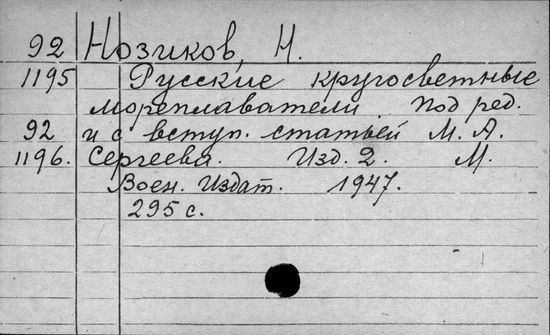 92 Нозиков, Н.
1195 Русские кругосветные
мореплаватели. Под ред.
92 и с вступ. статьей М. А.
1196. Сергеева. Изд. 2. М.
Воен. Издат. 1947.
295 с.